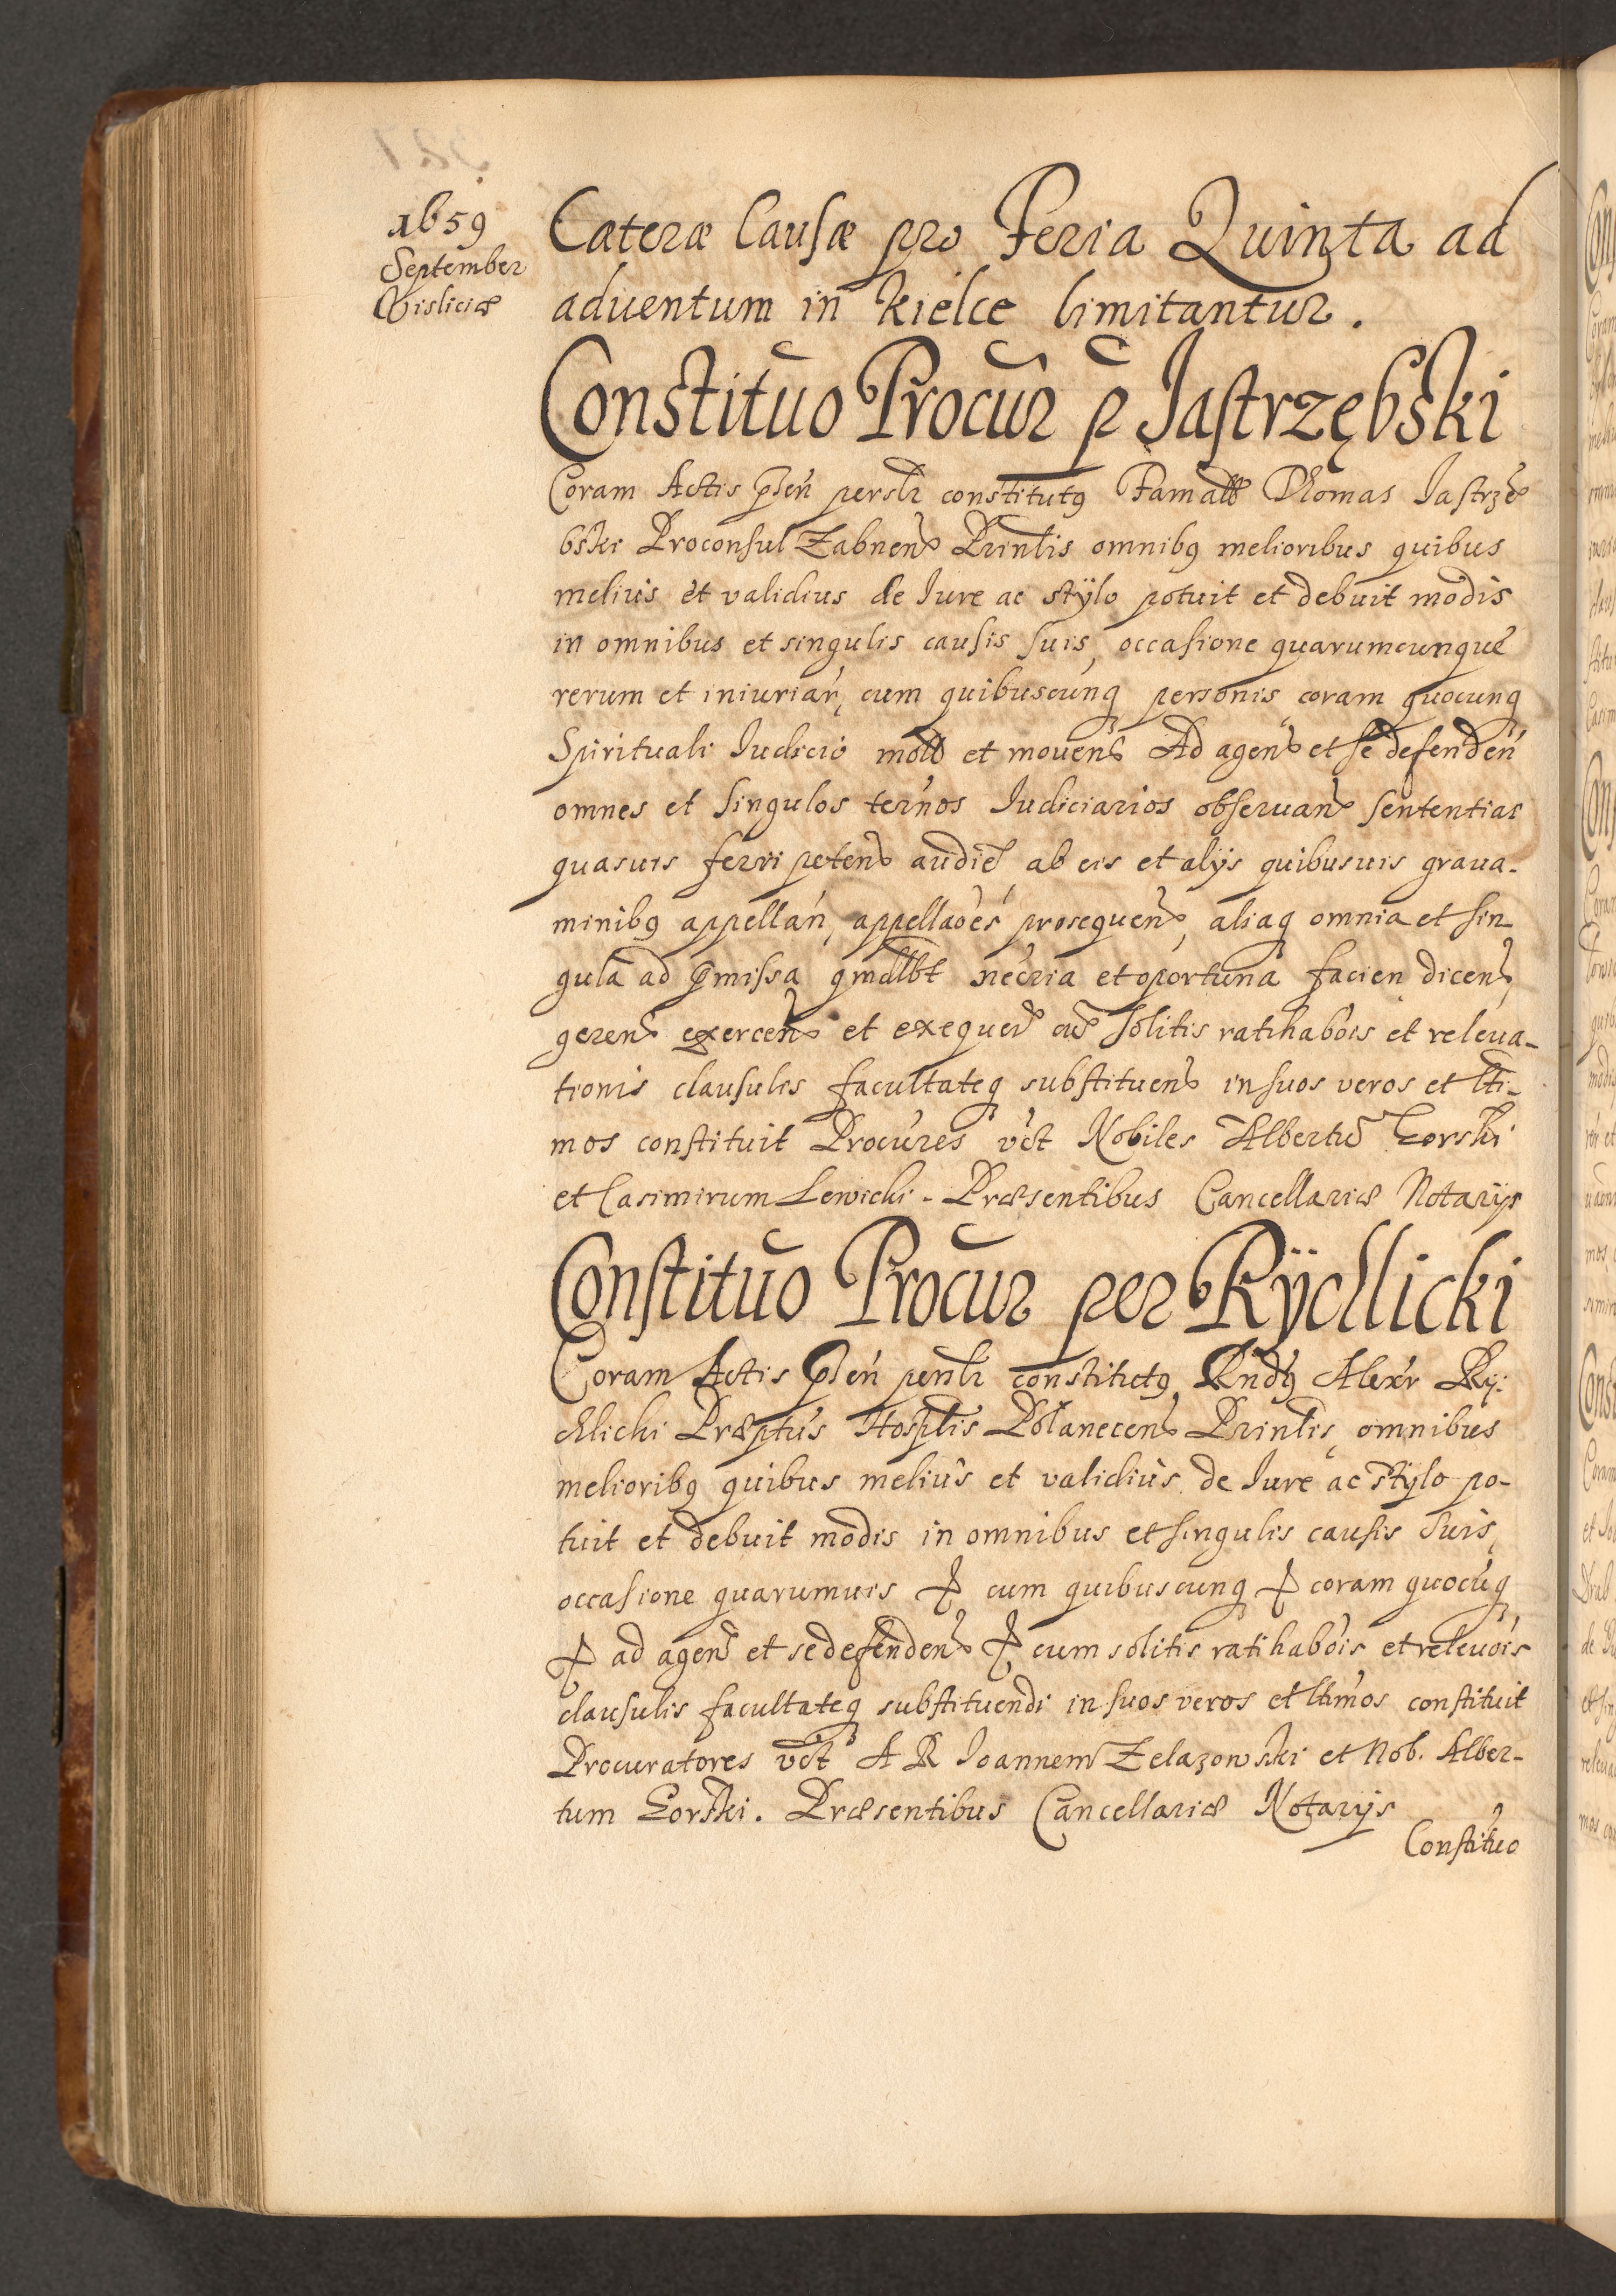 1659
September
Visliciæ
Cateræ Causæ pro Feria Quinta ad
aduentum in Kielce limitantur.
Constituo Procur p Jastrzębski
Coram Actis pñsen persłr constitutq Famatt Thomas Jastrzę
bski Proconsul Zabnens Prinłis omnibq melioribus quibus
melius et validius de Iure ac stÿlo potuit et debuit modis
in omnibus et singulis causis suis, occasione quarumcunque
rerum et iniuriar, cum quibuscunq personis coram quocunq
Spirituali Iudicio mott et mouend Ad agend et se defenden
omnes et singulos ternos Iudiciarios obseruand sententias
quasuis ferri petend audied ab eis et alÿs quibusuis graua-
minibq appellan, appellaoes prosequend, aliaq omnia et sin
gula ad pmissa qmdłbt necria et oportuna facien dicend,
gerend exercend et exequend cū solitis ratihabois et releua-
tionis clausulis facultateq substituend in suos veros et łti-
mos constituit Procures vct Nobiles Albertū Gorski
et Casimirum Lewicki - Præsentibus Cancellariæ Notarÿs
Constituo Procur per Rÿchlicki
Coram Actis pñsen perslr constitutq Rndq Alexr Rÿ:
chlicki Præptus Hosplis Polanecens Prinłis, omnibus
melioribq quibus melius et validius de Iure ac stÿlo po-
tuit et debuit modis in omnibus et singulis causis suis,
occasione quarumuis & cum quibuscunq & coram quocuq
& ad agend et se defendend & cum solitis ratihabois et releuois
clausulis facultateq substituendi in suos veros et łtimos constituit
Procuratores vct A R Ioannem Zelazowski et Nob. Alber-
tum Gorski. Præsentibus Cancellariæ Notarÿs
Constituo